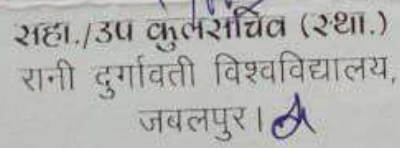 सहा./उप कुलसचिव (स्था.)
रानी दुर्गावती विश्वविद्यालय,
जबलपुर।